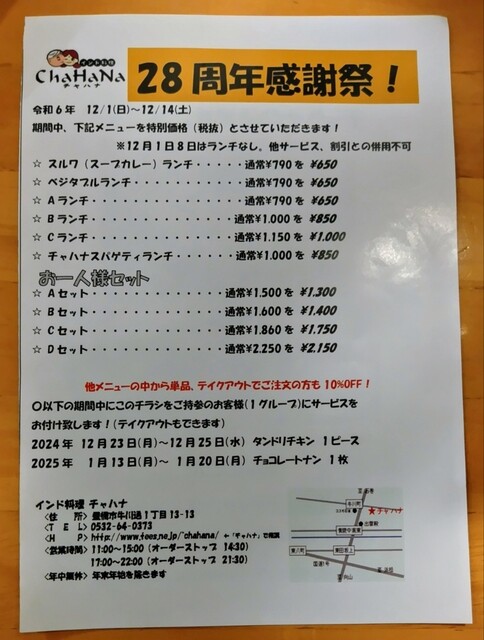 インド料理
ChaHaNa
チャハナ
28周年感謝祭！
令和6年 12/1(日)～12/14(土)
期間中、下記メニューを特別価格（税抜）とさせていただきます！
※12月1日8日はランチなし。他サービス、割引との併用不可
☆ スルワ（スープカレー）ランチ・・・・・通常¥790を ¥650
☆ ベジタブルランチ・・・・・・・・・・・通常¥790を ¥650
☆ Aランチ・・・・・・・・・・・・・・・通常¥790を ¥650
☆ Bランチ・・・・・・・・・・・・・・通常¥1.000を ¥850
☆ Cランチ・・・・・・・・・・・・・・通常¥1.150を ¥1.000
☆ チャハナスパゲティランチ・・・・・・通常¥1.000を ¥850
お一人様セット
☆ Aセット・・・・・・・・・・・・・・通常¥1.500を ¥1.300
☆ Bセット・・・・・・・・・・・・・・通常¥1.600を ¥1.400
☆ Cセット・・・・・・・・・・・・・・通常¥1.860を ¥1.750
☆ Dセット・・・・・・・・・・・・・・通常¥2.250を ¥2.150
他メニューの中から単品、テイクアウトでご注文の方も 10%OFF！
〇以下の期間中にこのチラシをご持参のお客様(1グループ)にサービスを
お付け致します！(テイクアウトもできます)
2024年 12月23日(月)～12月25日(水) タンドリチキン 1ピース
2025年 1月13日(月)～ 1月20日(月) チョコレートナン 1枚
インド料理 チャハナ
〈住 所〉豊橋市牛川通1丁目13-13
〈T E L〉0532-64-0373
〈H P〉http://www.tees.ne.jp/~chahana/ ←「チャハナ」で検索
〈営業時間〉11:00～15:00（オーダーストップ 14:30)
17:00～22:00（オーダーストップ 21:30)
〈年中無休〉年末年始を除きます
★チャハナ